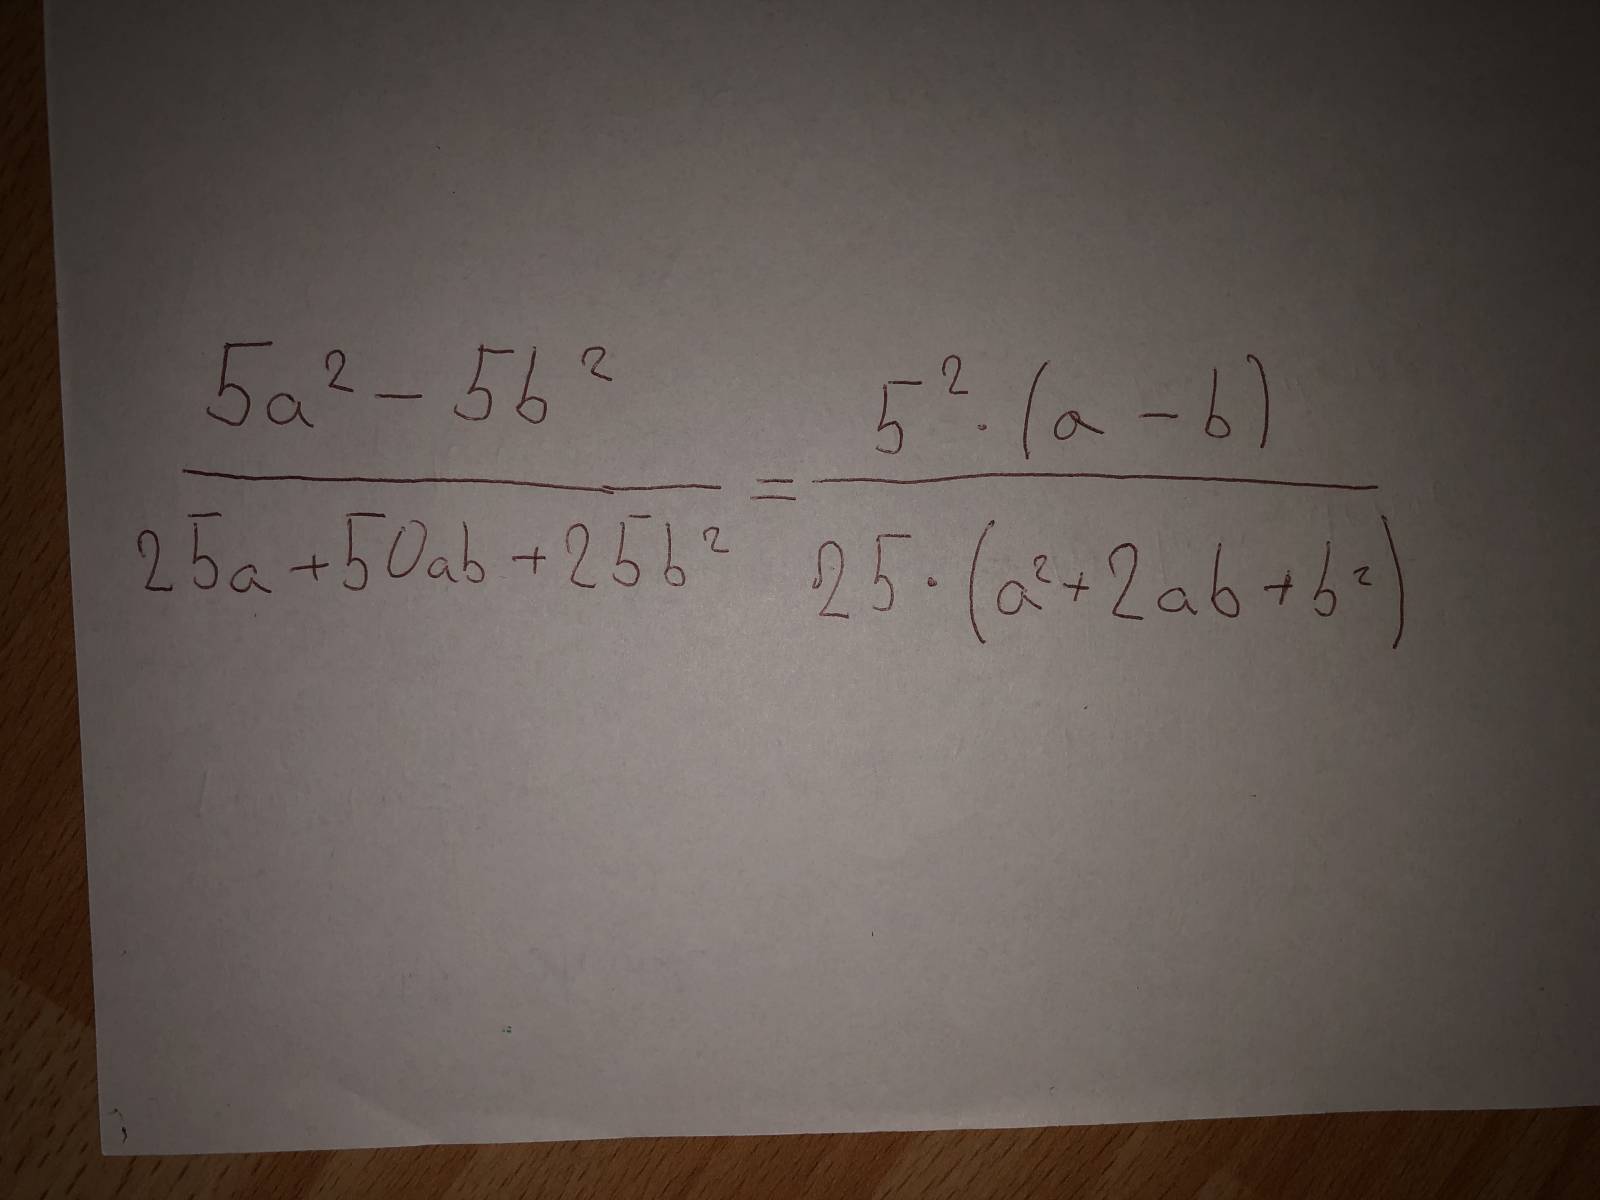 5a² - 5b² / 25a + 50ab + 25b² = 5² · (a - b) / 25 · (a² + 2ab + b²)